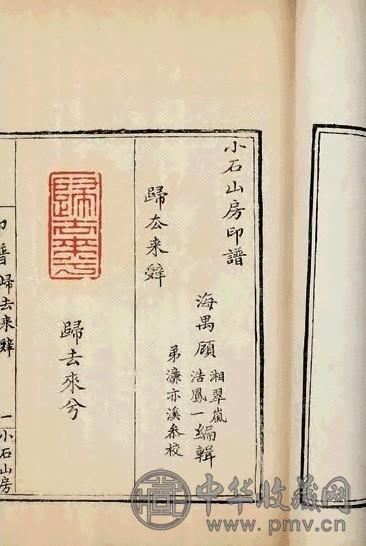 小石山房印譜
海禺顧湘翠嵐浩鳳一編輯
弟濂亦溪參校
歸去来辭
歸去來兮
歸去來兮
印譜 歸去来辭 一 小石山房
中华收藏网
www.pmv.cn